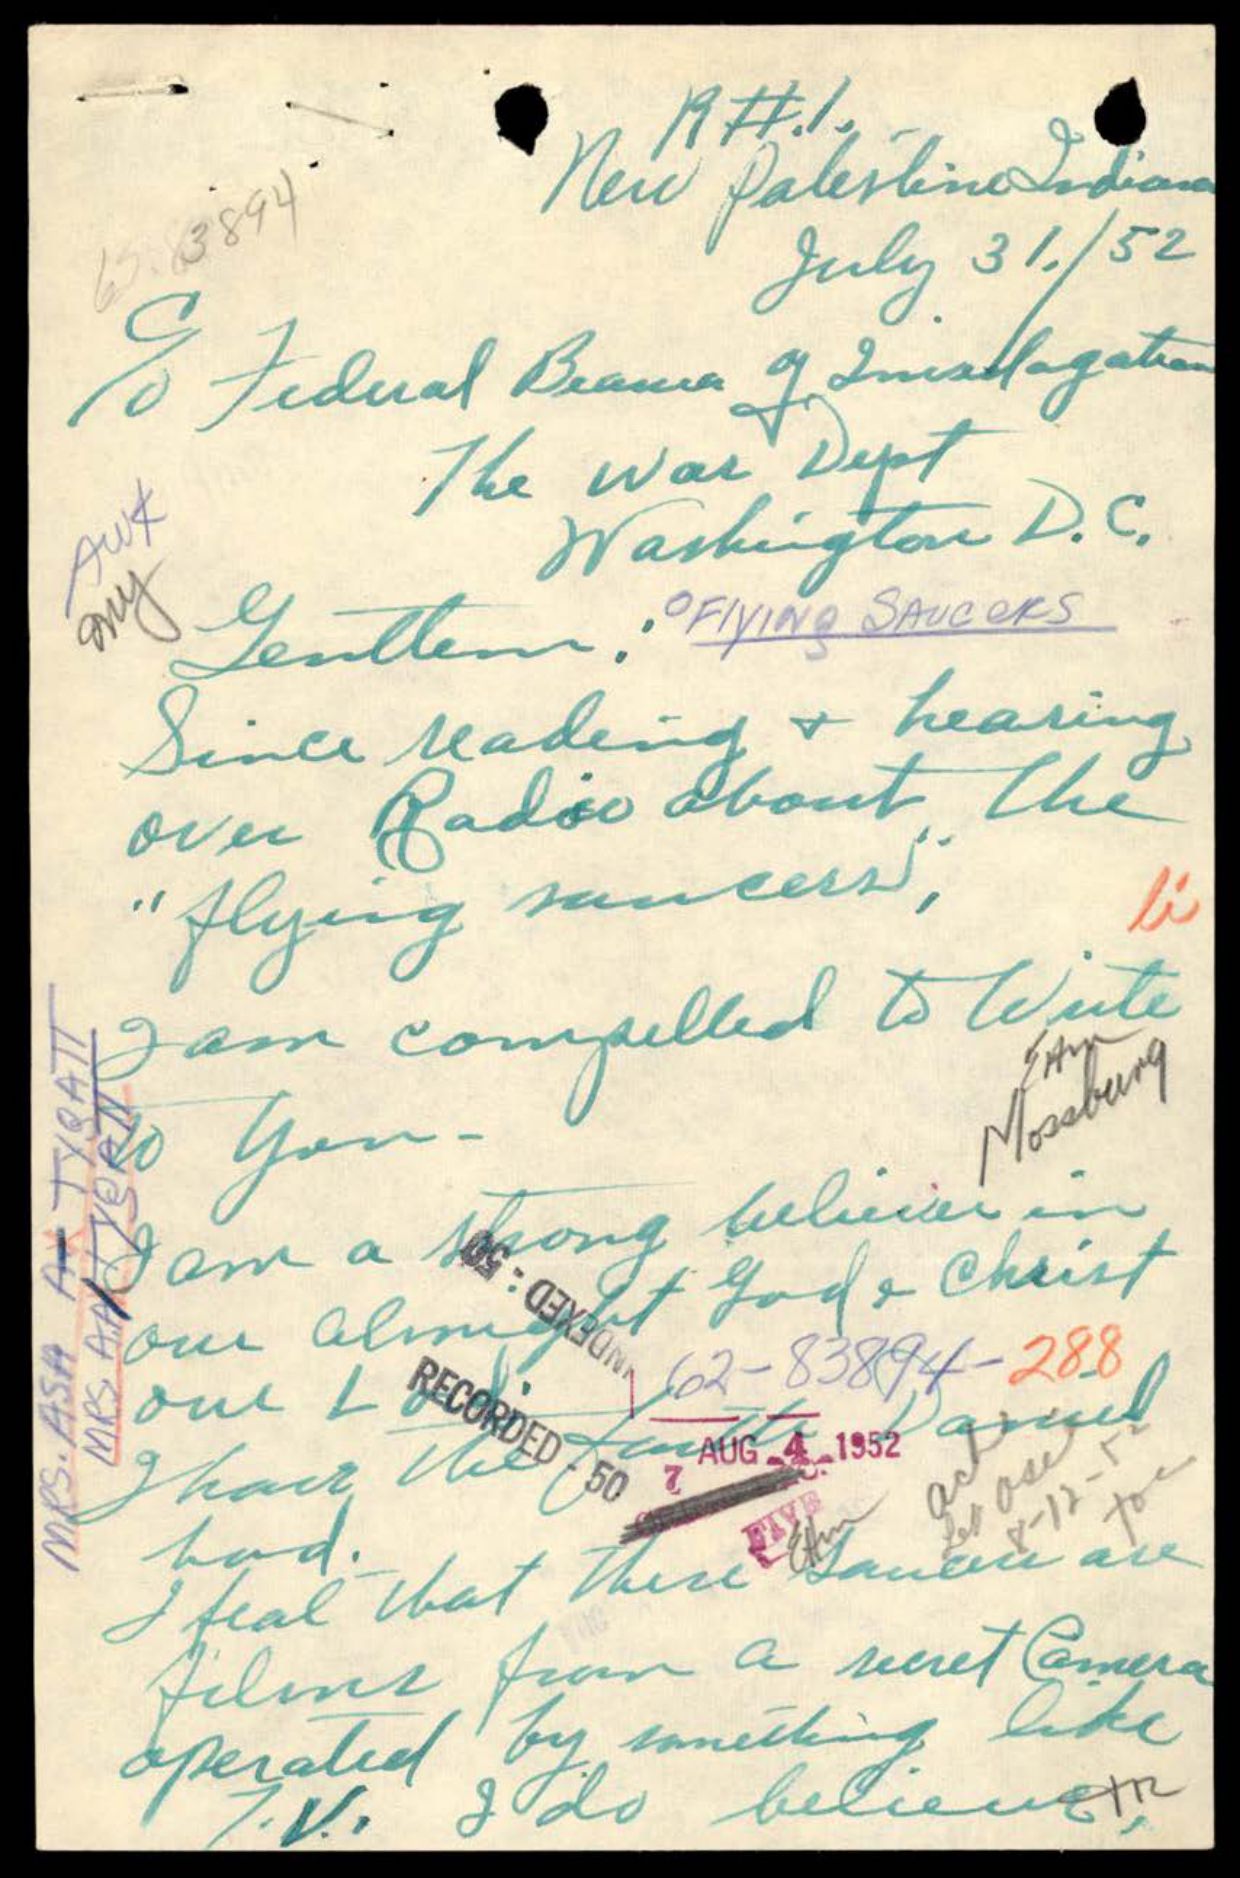 R #.1.
New Palestine Indiana
July 31./52
65-83894
C/o Federal Beaura of Invesdagation
The War Dept
Washington D.C.
AWK
Gentlem:
"FlYING SAUCERS
Since reading + hearing
over Radio about the
"flying saucers",
li
I am compelled to Write
EHM
Mossburg
to You-
I am a strong believer in
our almight God & Christ
INDEXED - 50
our Lord.
62-83894-288
RECORDED - 50
I have the faith Daniel
7 AUG 4 1952
had.
FIVE
EHM
ack
8-12-52
I feal that these Saucers are
films from a secret Camera
operated by something like
T.V. I do believe,
MRS. ASA A. TYGATT
MRS. A.A. TYGART